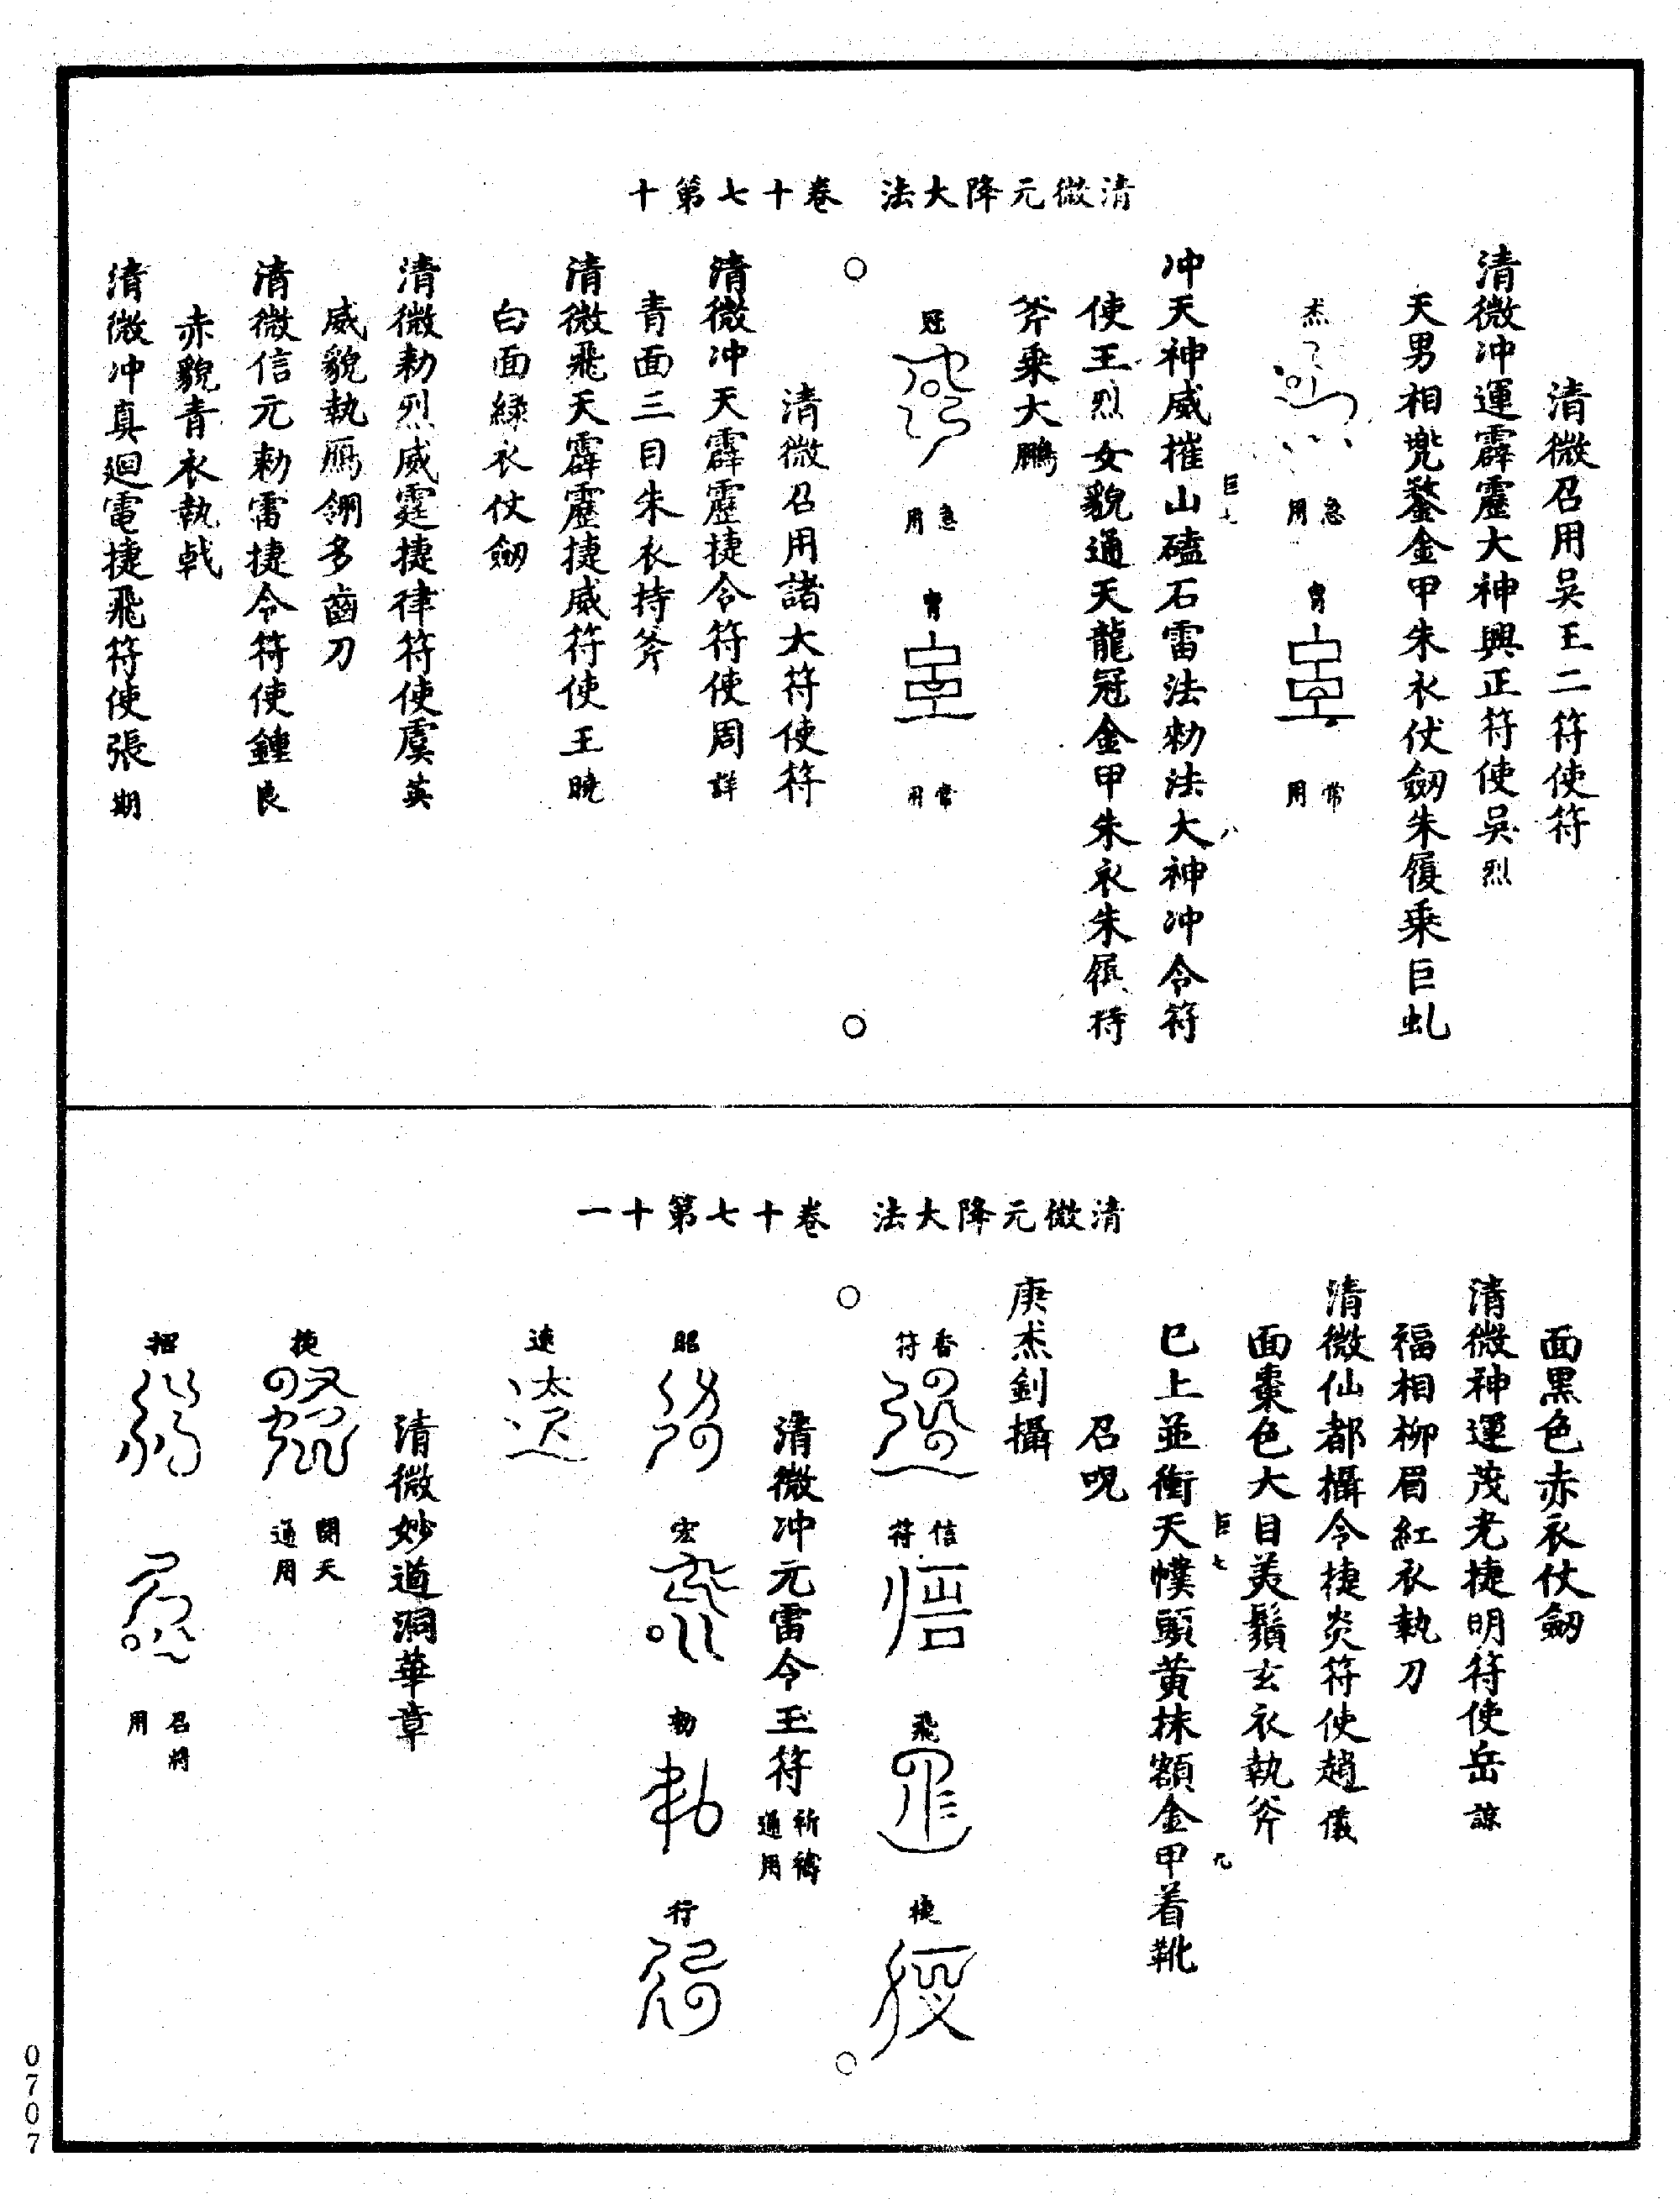 清微元降大法　卷十七第十
清微召用吳王二符使符
清微冲運霹靂大神興正符使吳烈
天男相兜鍪金甲朱衣仗劒朱履乘巨虬
炁
急用
胄
常用
巨七
八
冲天神威摧山磕石雷法勑法大神冲令符
使王烈女貌通天龍冠金甲朱衣朱履持
斧乘大鵬
冠
急用
胄
常用
清微召用諸大符使符
清微冲天霹靂捷令符使周詳
青面三目朱衣持斧
清微飛天霹靂捷威符使王曉
白面緑衣仗劒
清微勑烈威霆捷律符使虞英
威貌執鴈翎多齒刀
清微信元勑雷捷令符使鍾良
赤貌青衣執戟
清微冲真迴電捷飛符使張期
清微元降大法　卷十七第十一
面黑色赤衣仗劒
清微神運茂光捷明符使岳諒
福相柳眉紅衣執刀
清微仙都攝令捷炎符使趙儀
面棗色大目美鬚玄衣執斧
巨七
九
巳上並衝天幞頭黄抹額金甲着靴
召呪
庚炁釗攝
香符
信符
飛
捷
清微冲元雷令玉符祈禱通用
昭
宏
勑
行
速
清微妙道洞華章
捷
開天通用
招
召將用
0707